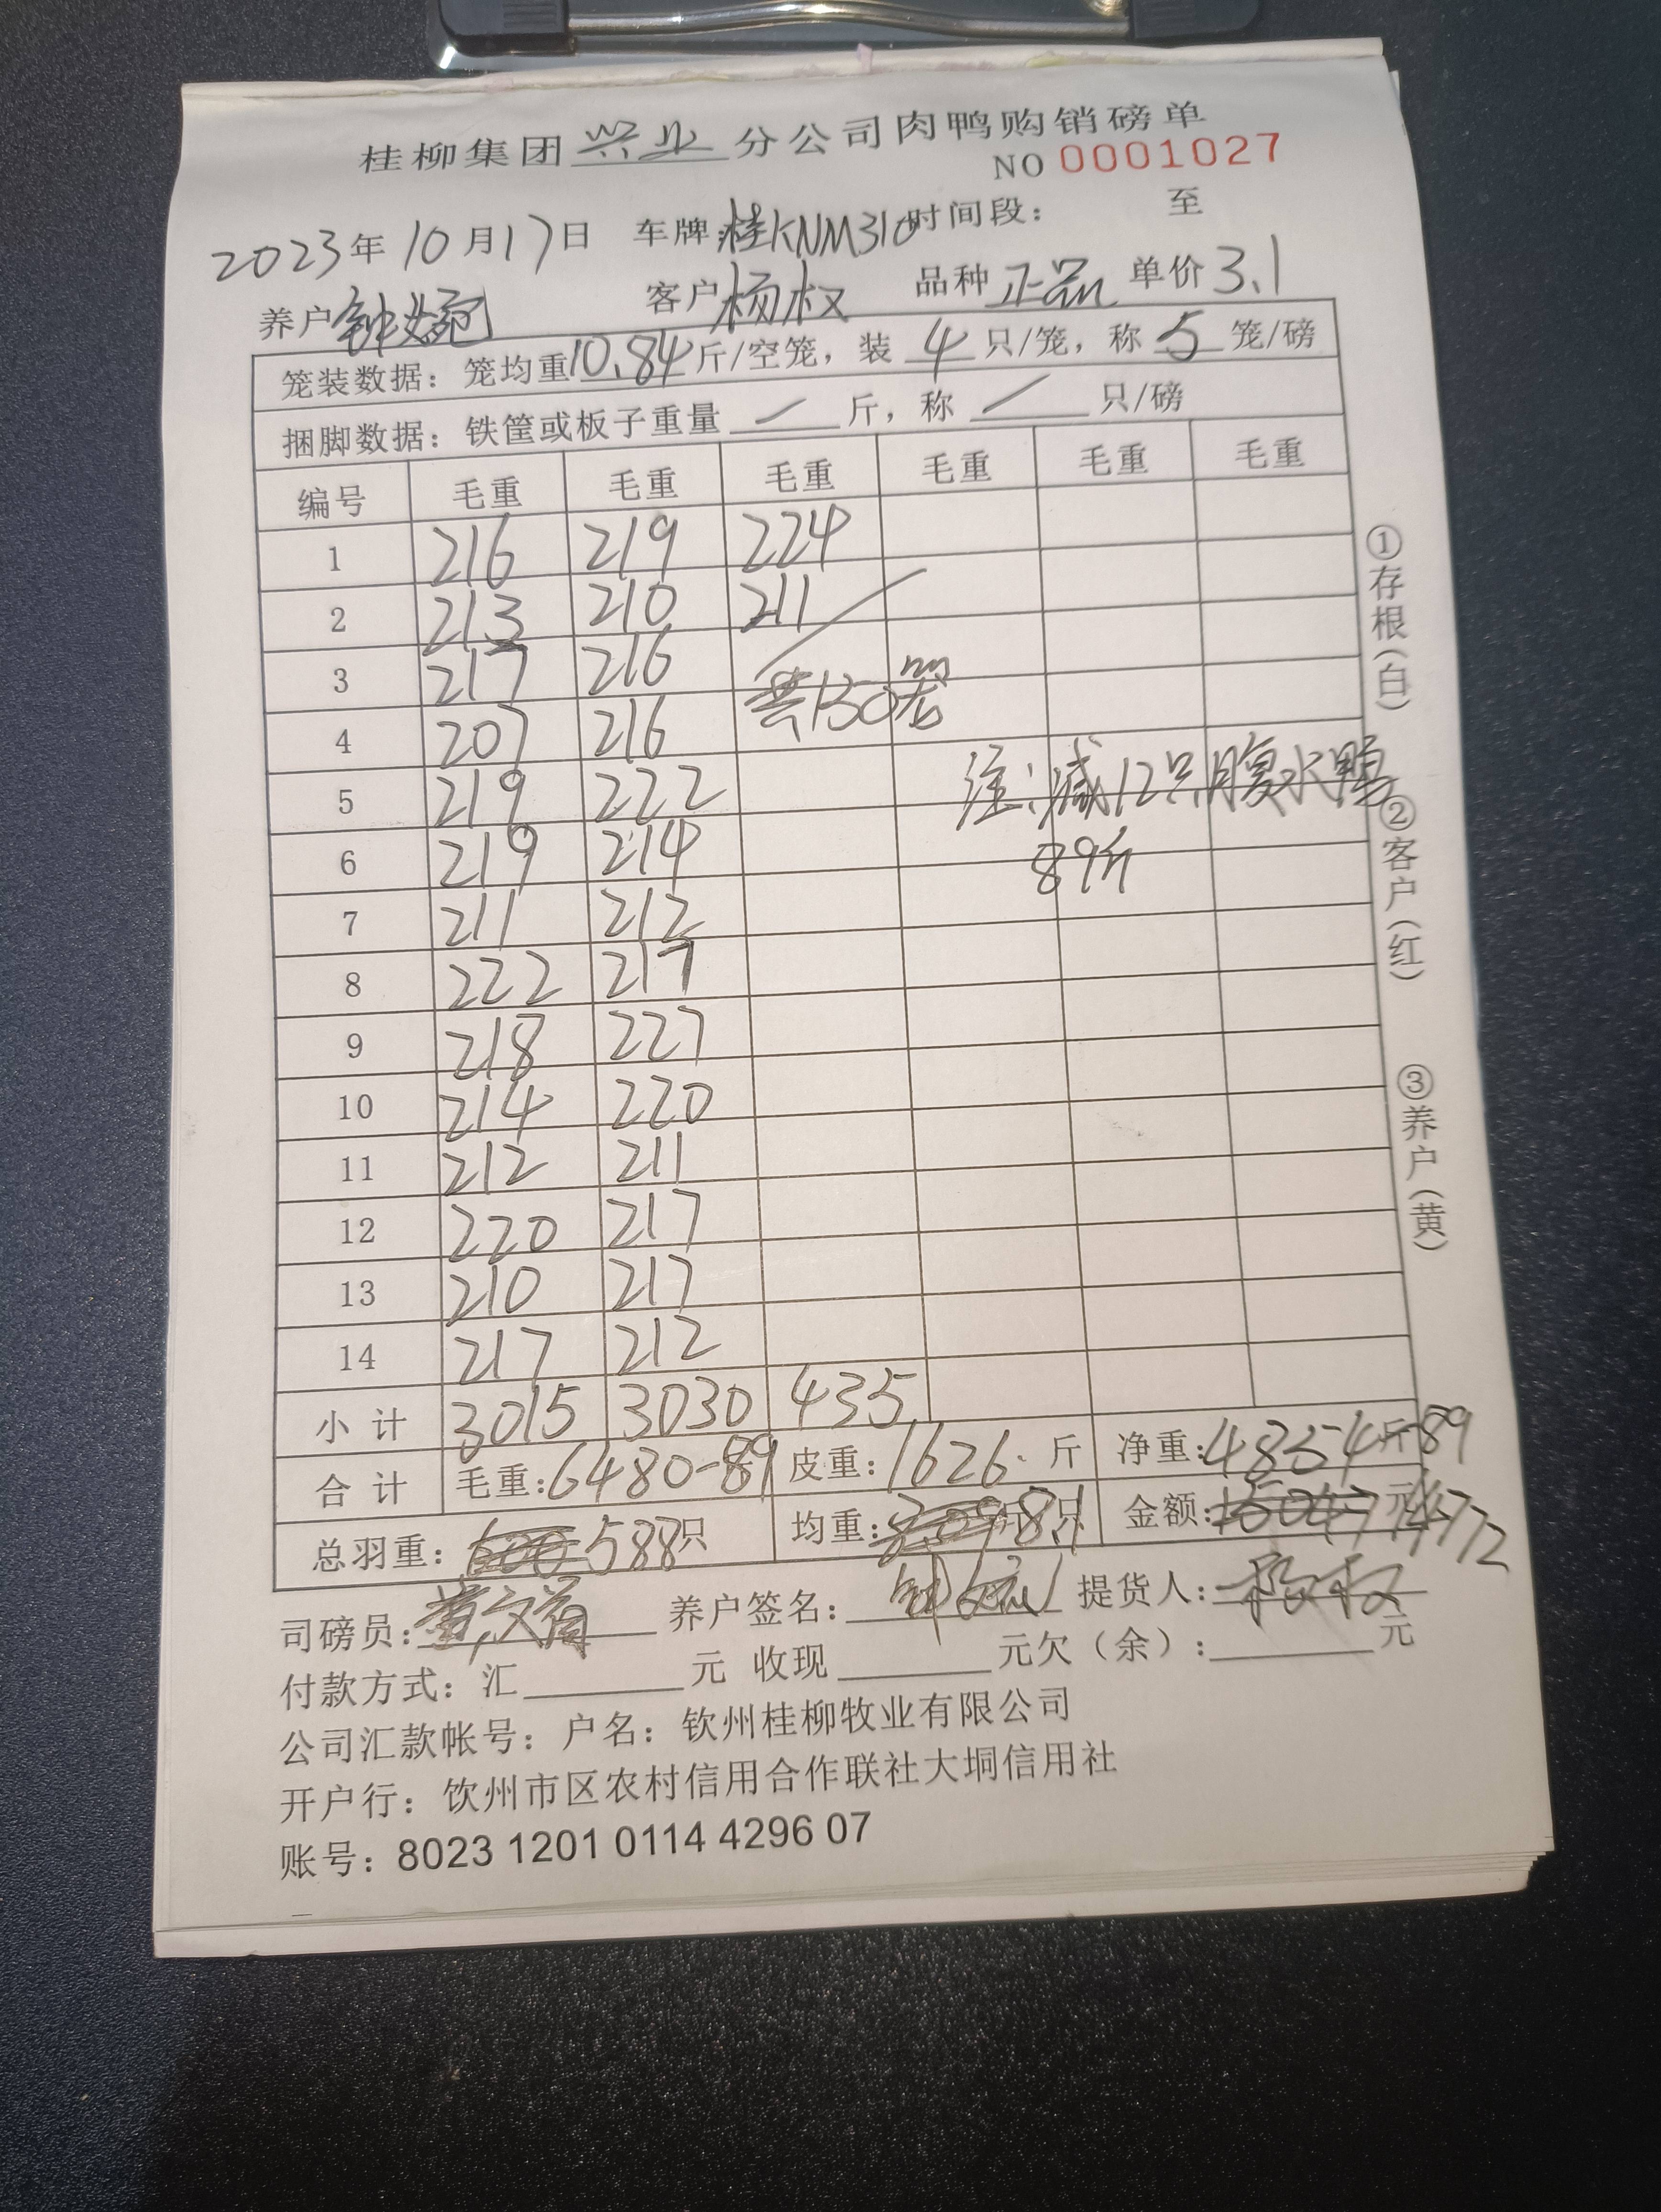 桂柳集团 兴业 分公司肉鸭购销磅单
NO 0001027
2023年10月17日 车牌:桂KNM310 时间段: 至
养户 钟 客户 杨权 品种 正品 单价 3.1
笼装数据: 笼均重 10.84 斤/空笼, 装 4 只/笼, 称 5 笼/磅
捆脚数据: 铁筐或板子重量 / 斤, 称 / 只/磅
编号 毛重 毛重 毛重 毛重 毛重 毛重
1 216 219 224
2 213 210 211
3 217 216
共150笼
4 207 216
注:减12只腹水鸭
5 219 222
89斤
6 219 214
7 211 212
8 222 217
9 218 227
10 214 220
11 212 211
12 220 217
13 210 217
14 217 212
小计 3015 3030 435
合计 毛重:6480-89 皮重:1626. 斤 净重:4854斤-89
总羽重: 600 588只 均重: 8.09斤/只 8.1 金额: 15047元 14772
司磅员: 养户签名: 提货人: 杨权
付款方式: 汇 元 收现 元欠(余): 元
公司汇款帐号: 户名: 钦州桂柳牧业有限公司
开户行: 钦州市区农村信用合作联社大垌信用社
账号: 8023 1201 0114 4296 07
①存根(白)
②客户(红)
③养户(黄)